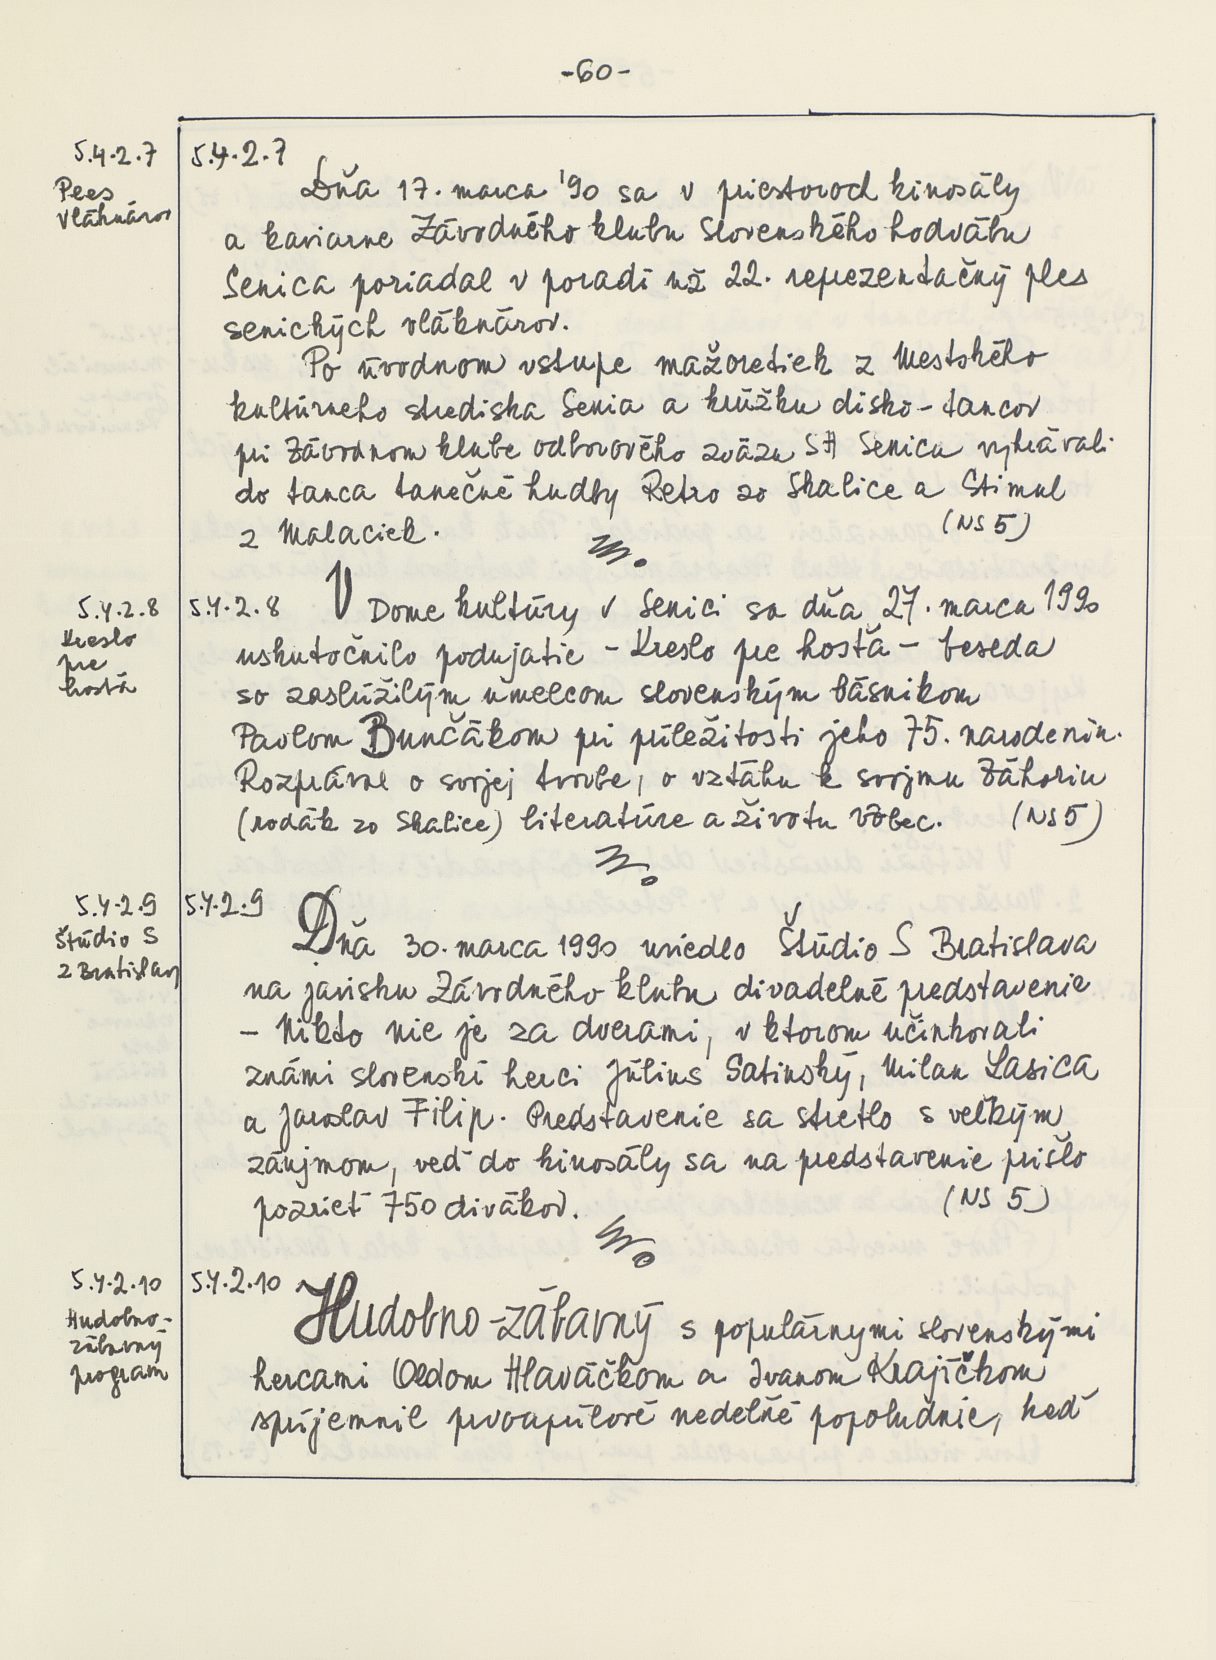 -60-
5.4.2.7
Ples
vláknárov
5.4.2.7
Dňa 17. marca '90 sa v priestoroch kinosály
a kaviarne Závodného klubu Slovenského hodvábu
Senica poriadal v poradí už 22. reprezentačný ples
senických vláknárov.
Po úvodnom vstupe mažoretiek z Mestského
kultúrneho strediska Senia a krúžku disko-tancov
pri Závodnom klube odborového zväzu SH Senica vyhrávali
do tanca tanečné hudby Retro zo Skalice a Stimul
z Malaciek. (NS 5)
5.4.2.8
Kreslo
pre
hosťa
5.4.2.8 V Dome kultúry v Senici sa dňa 27. marca 1990
uskutočnilo podujatie - Kreslo pre hosťa - beseda
so zaslúžilým umelcom slovenským básnikom
Pavlom Bunčákom pri príležitosti jeho 75. narodenín.
Rozprával o svojej tvorbe, o vzťahu k svojmu Záhoriu
(rodák zo Skalice) literatúre a životu vôbec. (NS 5)
5.4.2.9
Štúdio S
z Bratislavy
5.4.2.9
Dňa 30. marca 1990 uviedlo Štúdio S Bratislava
na javisku Závodného klubu divadelné predstavenie
- Nikto nie je za dverami, v ktorom učinkovali
známi slovenskí herci Július Satinský, Milan Lasica
a Jaroslav Filip. Predstavenie sa stretlo s veľkým
záujmom, veď do kinosály sa na predstavenie prišlo
pozrieť 750 divákov. (NS 5)
5.4.2.10
Hudobno-
zábavný
program
5.4.2.10
Hudobno-zábavný s populárnymi slovenskými
hercami Oldom Hlaváčkom a Ivanom Krajíčkom
spríjemnil prvoaprílové nedeľné popoludnie, keď